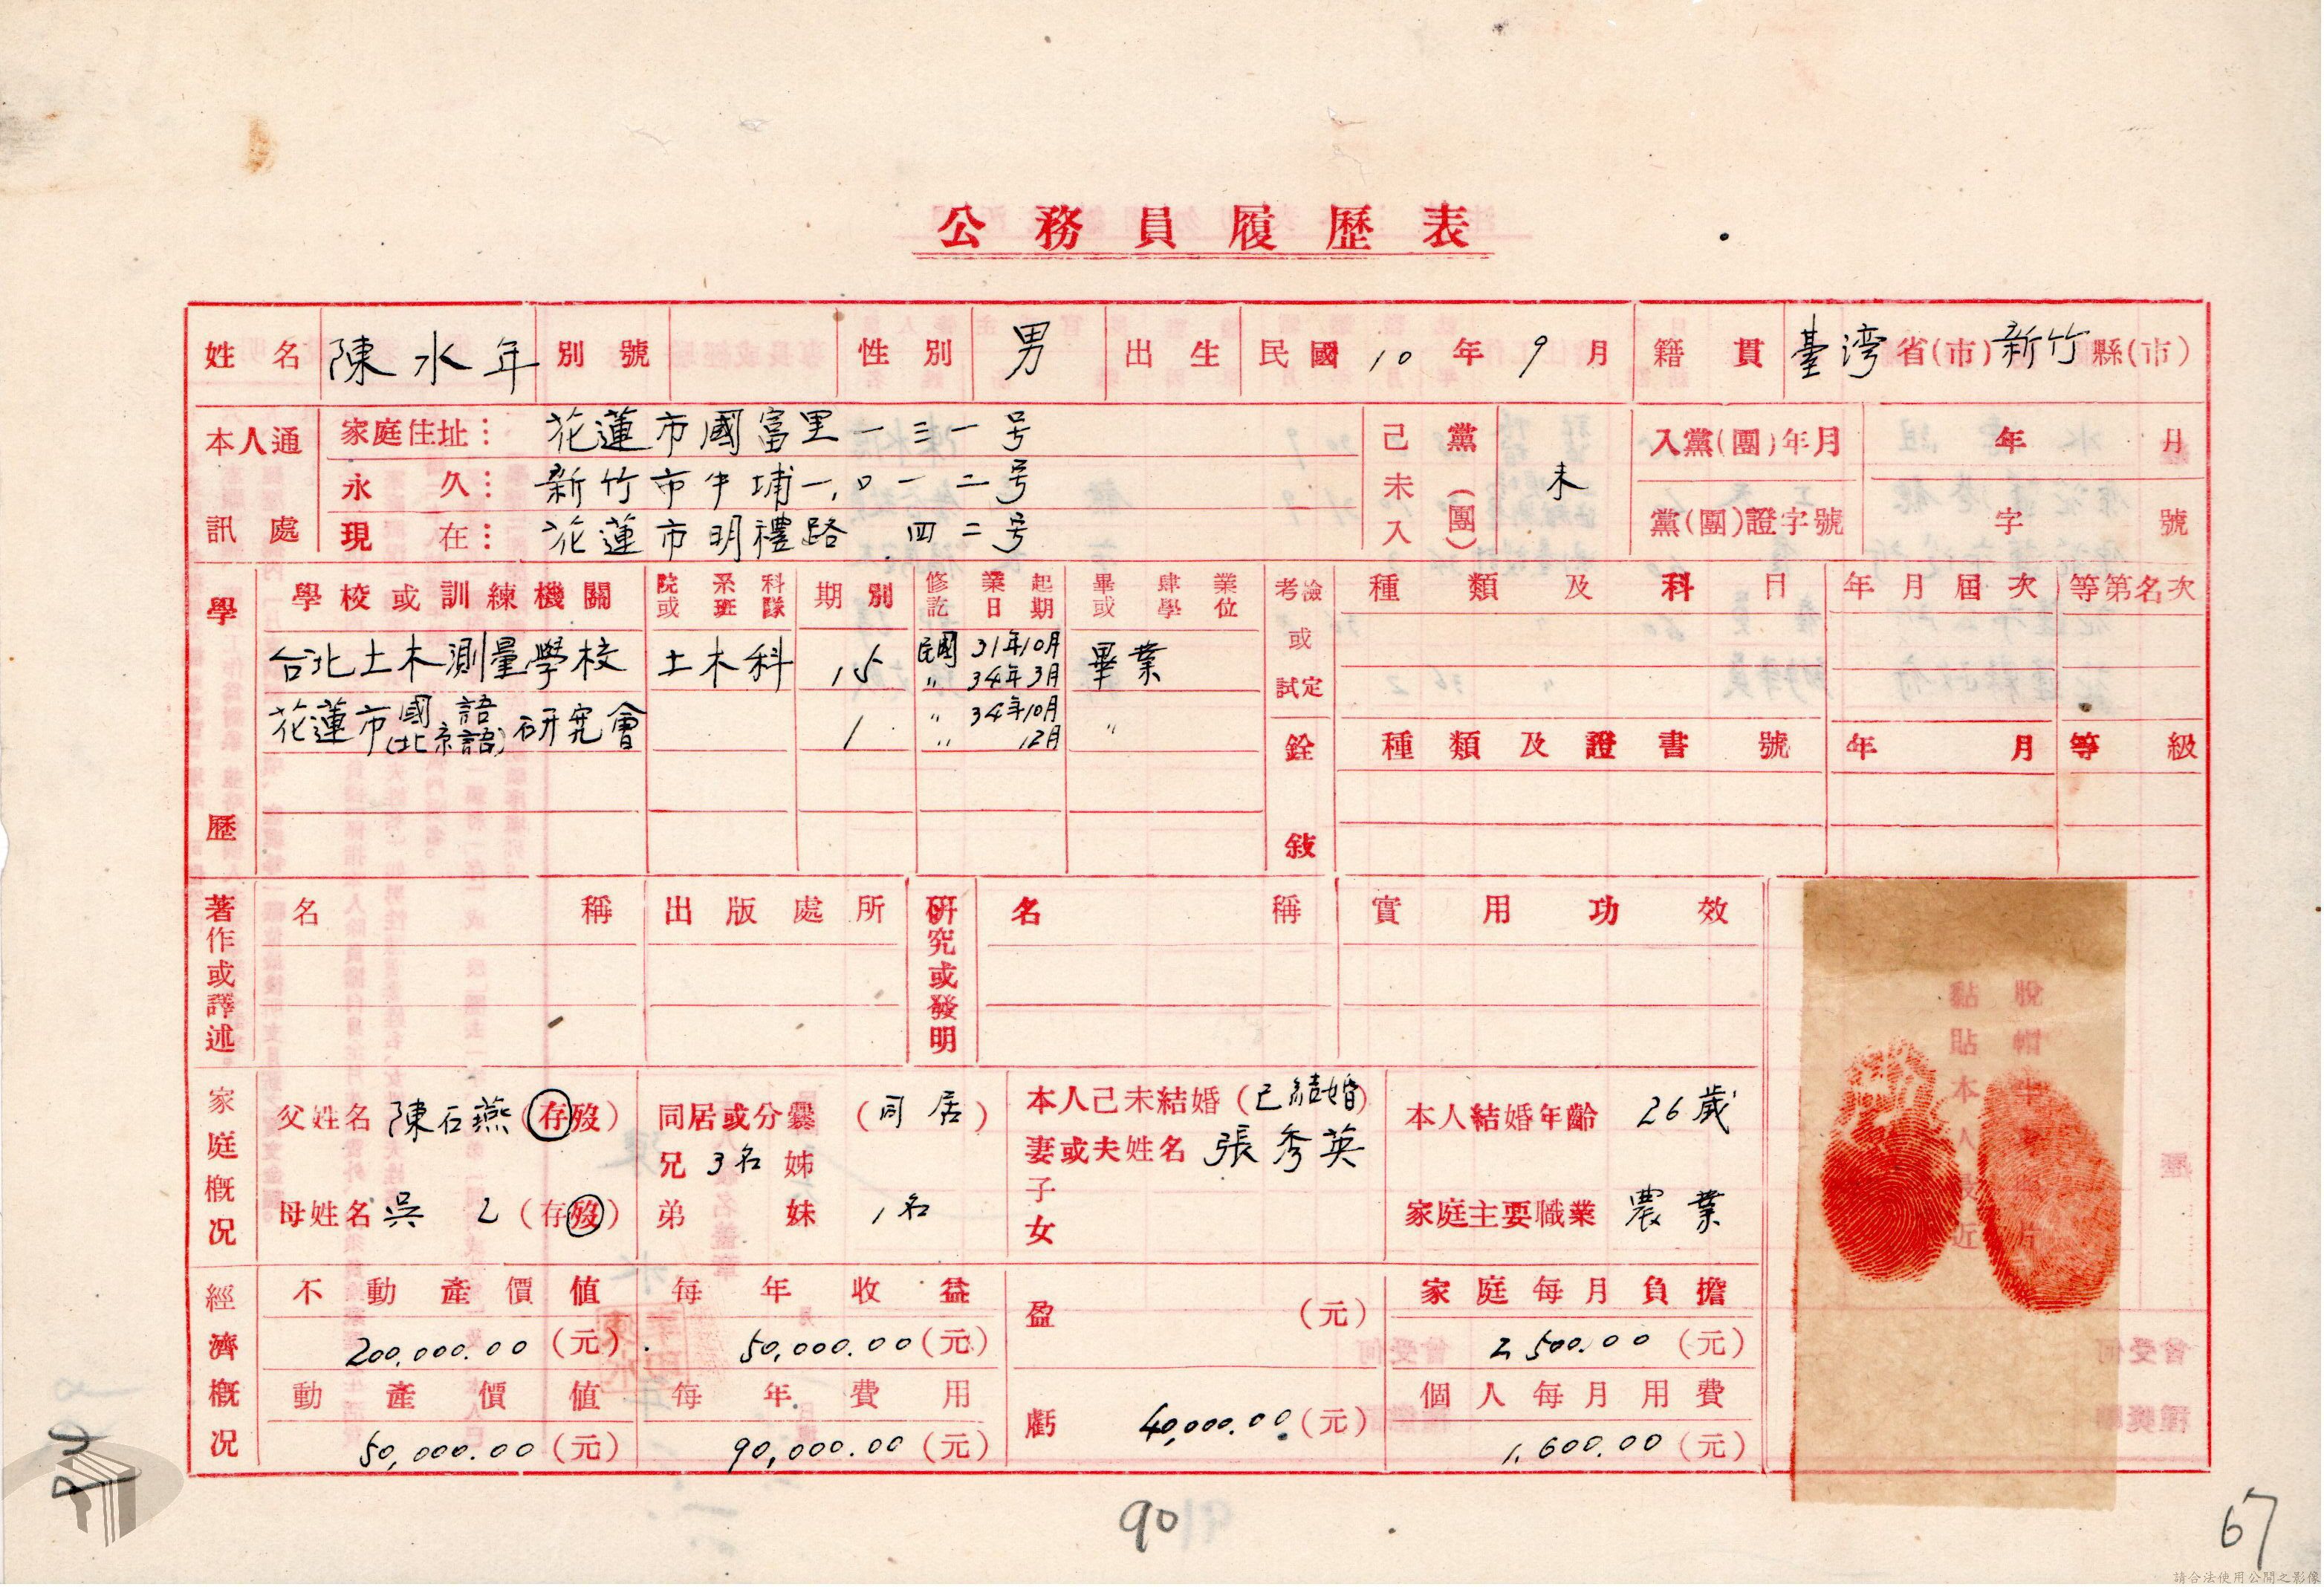 公務員履歷表
姓名 陳水年 別號 性別 男 出生 民國 10 年 9 月 籍貫 臺湾 省(市) 新竹 縣(市)
本人通訊處
家庭住址： 花蓮市國富里一三一号
永久： 新竹市牛埔一,〇一二号
現在： 花蓮市明禮路 四二号
己未入黨(團) 未
入黨(團)年月 年 月
黨(團)證字號 字 號
學歷
學校或訓練機關 院系科或班隊 期別 修業起訖日期 畢肄業或學位
台北土木測量學校 土木科 15 民國 31年10月 〃 34年3月 畢業
花蓮市國語(北京語)研究會 1 〃 34年10月 〃 12月 〃
考試或檢定 種類及科目 年月屆次 等第名次
銓敘 種類及證書號 年月 等級
著作或譯述 名稱 出版處所
研究或發明 名稱 實用功效
家庭概況
父姓名 陳石燕 (存歿)
母姓名 吳 乙 (存歿)
同居或分爨 (同居)
兄 3名 姊
弟 妹 1名
本人己未結婚 (已結婚)
妻或夫姓名 張秀英
子
女
本人結婚年齡 26歲
家庭主要職業 農業
脫帽半身照片
黏貼本人最近
經濟概況
不動產價值 每年收益 盈 (元) 家庭每月負擔
200,000.00 (元) 50,000.00 (元) 2,500.00 (元)
動產價值 每年費用 虧 40,000.00 (元) 個人每月用費
50,000.00 (元) 90,000.00 (元) 1,600.00 (元)
90
67
請合法使用公開之影像